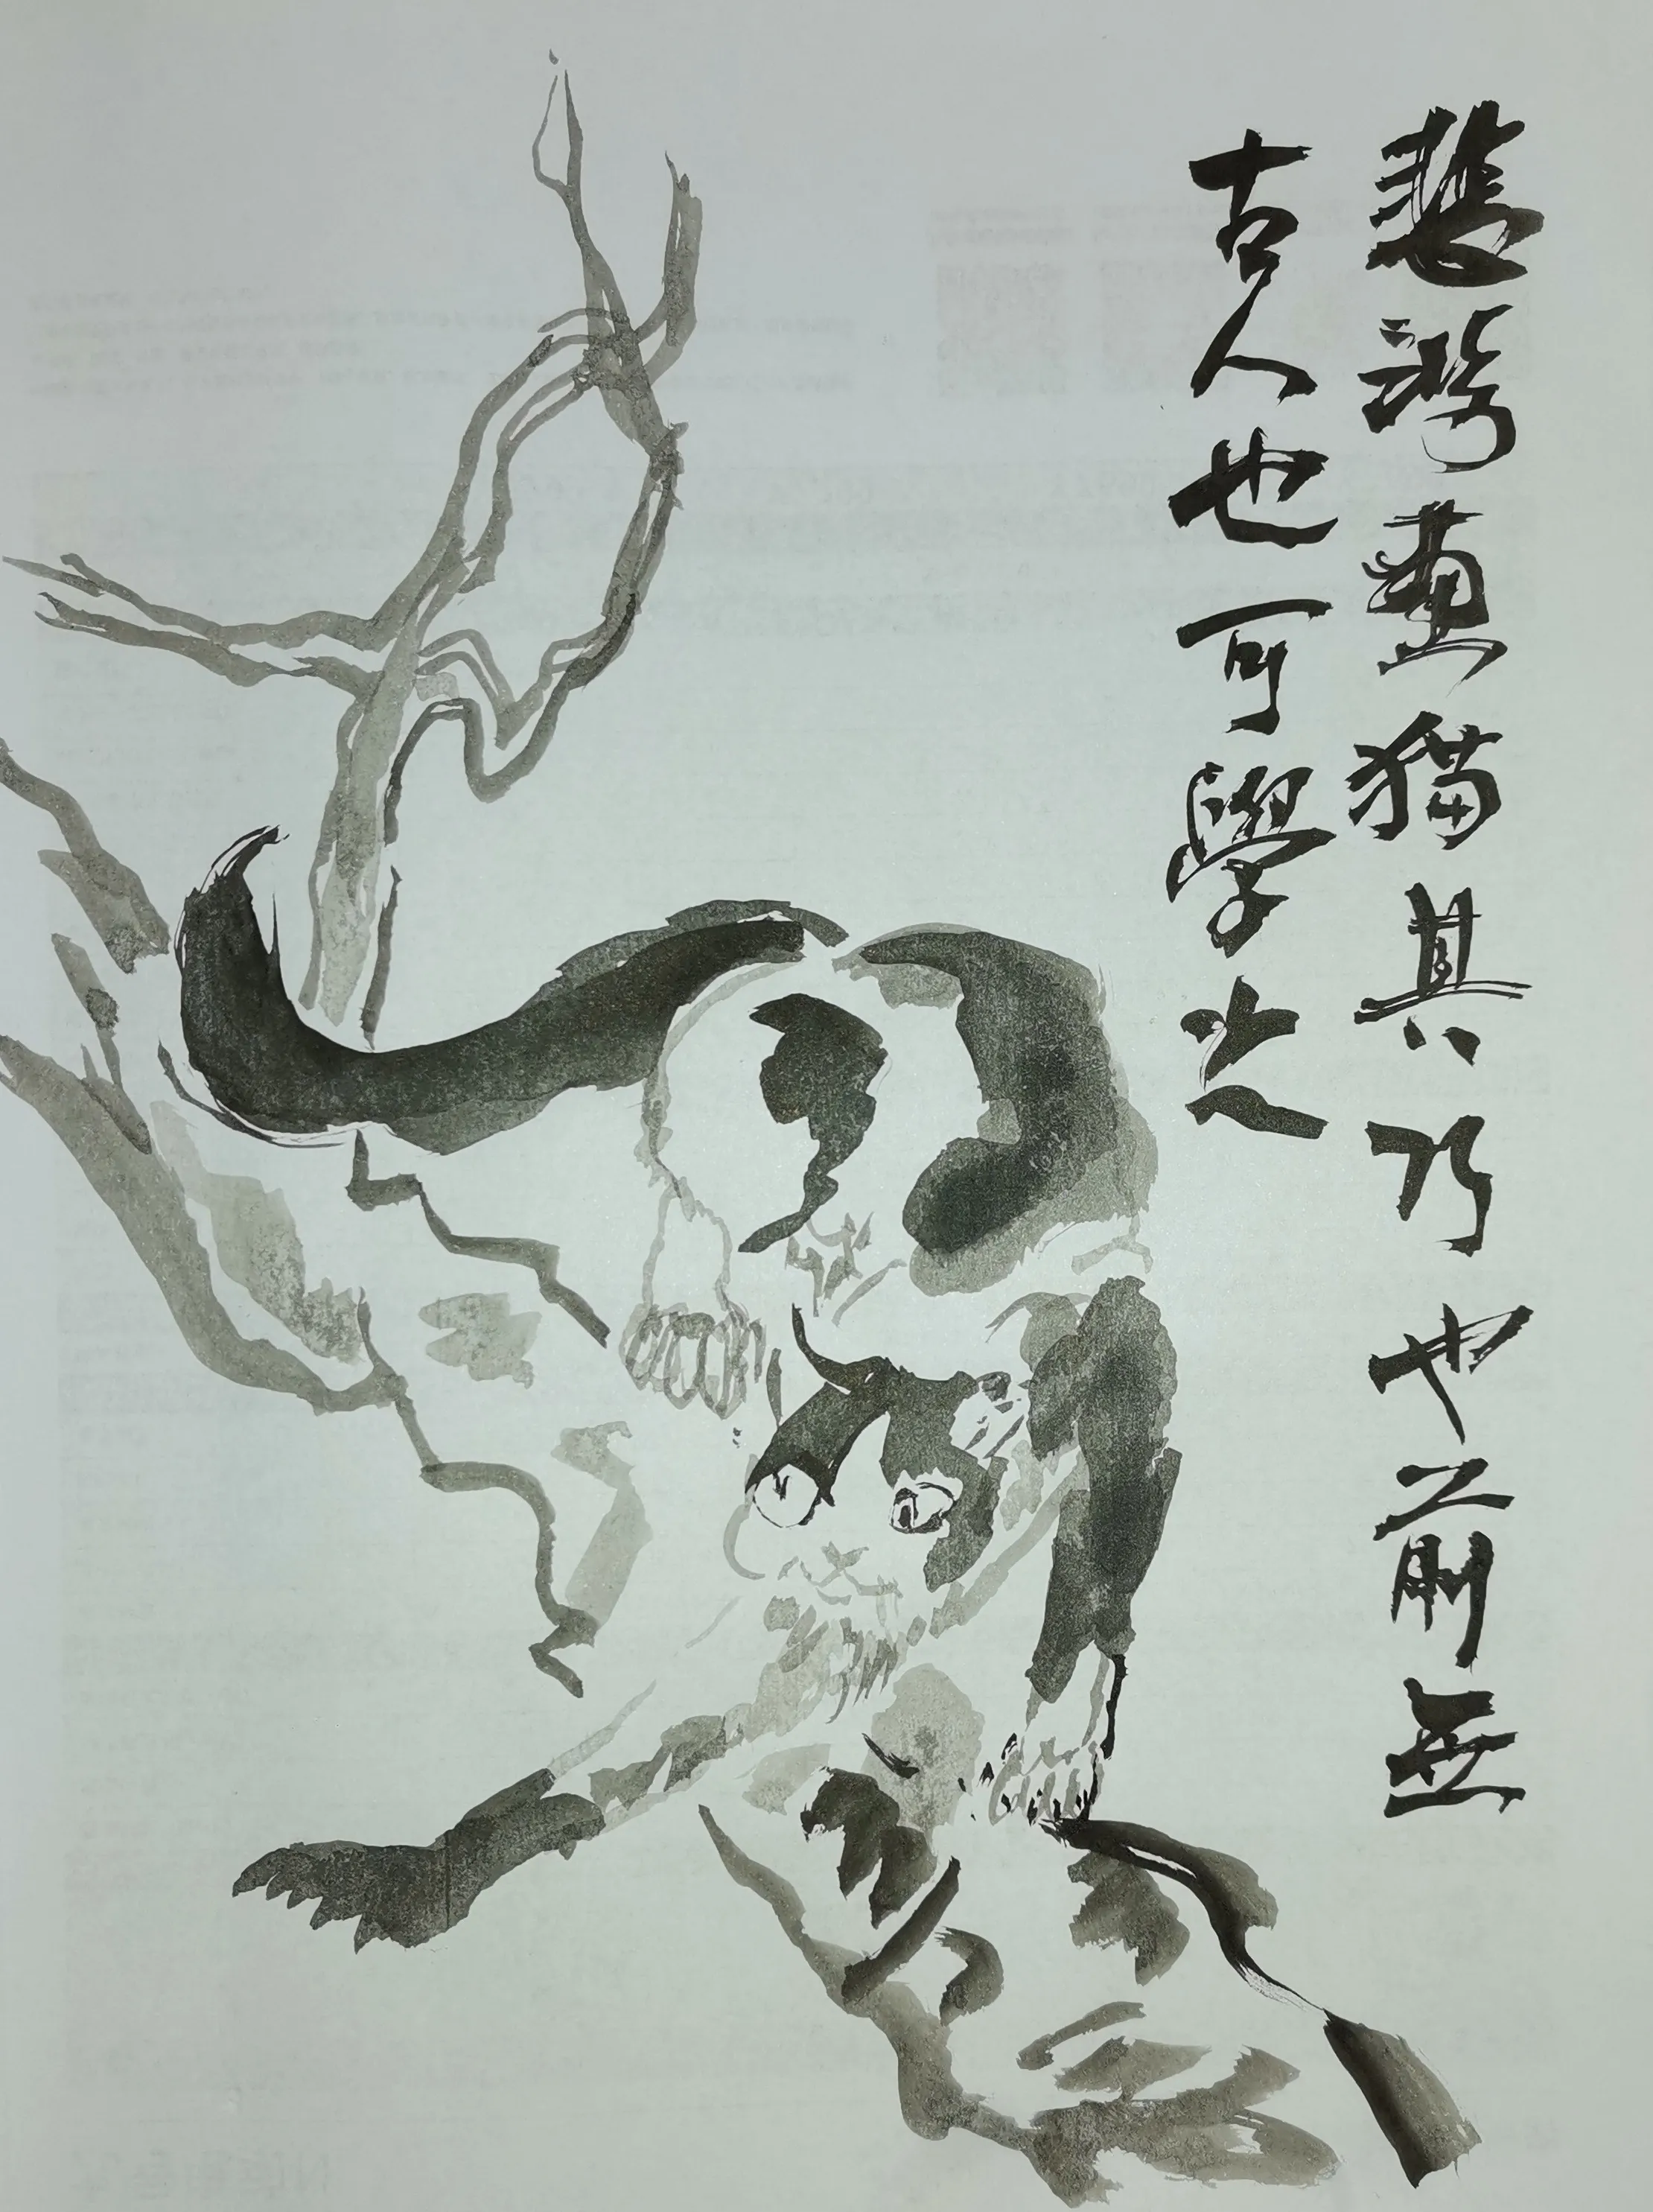 悲鴻畫猫其巧也前無
古人也可學之